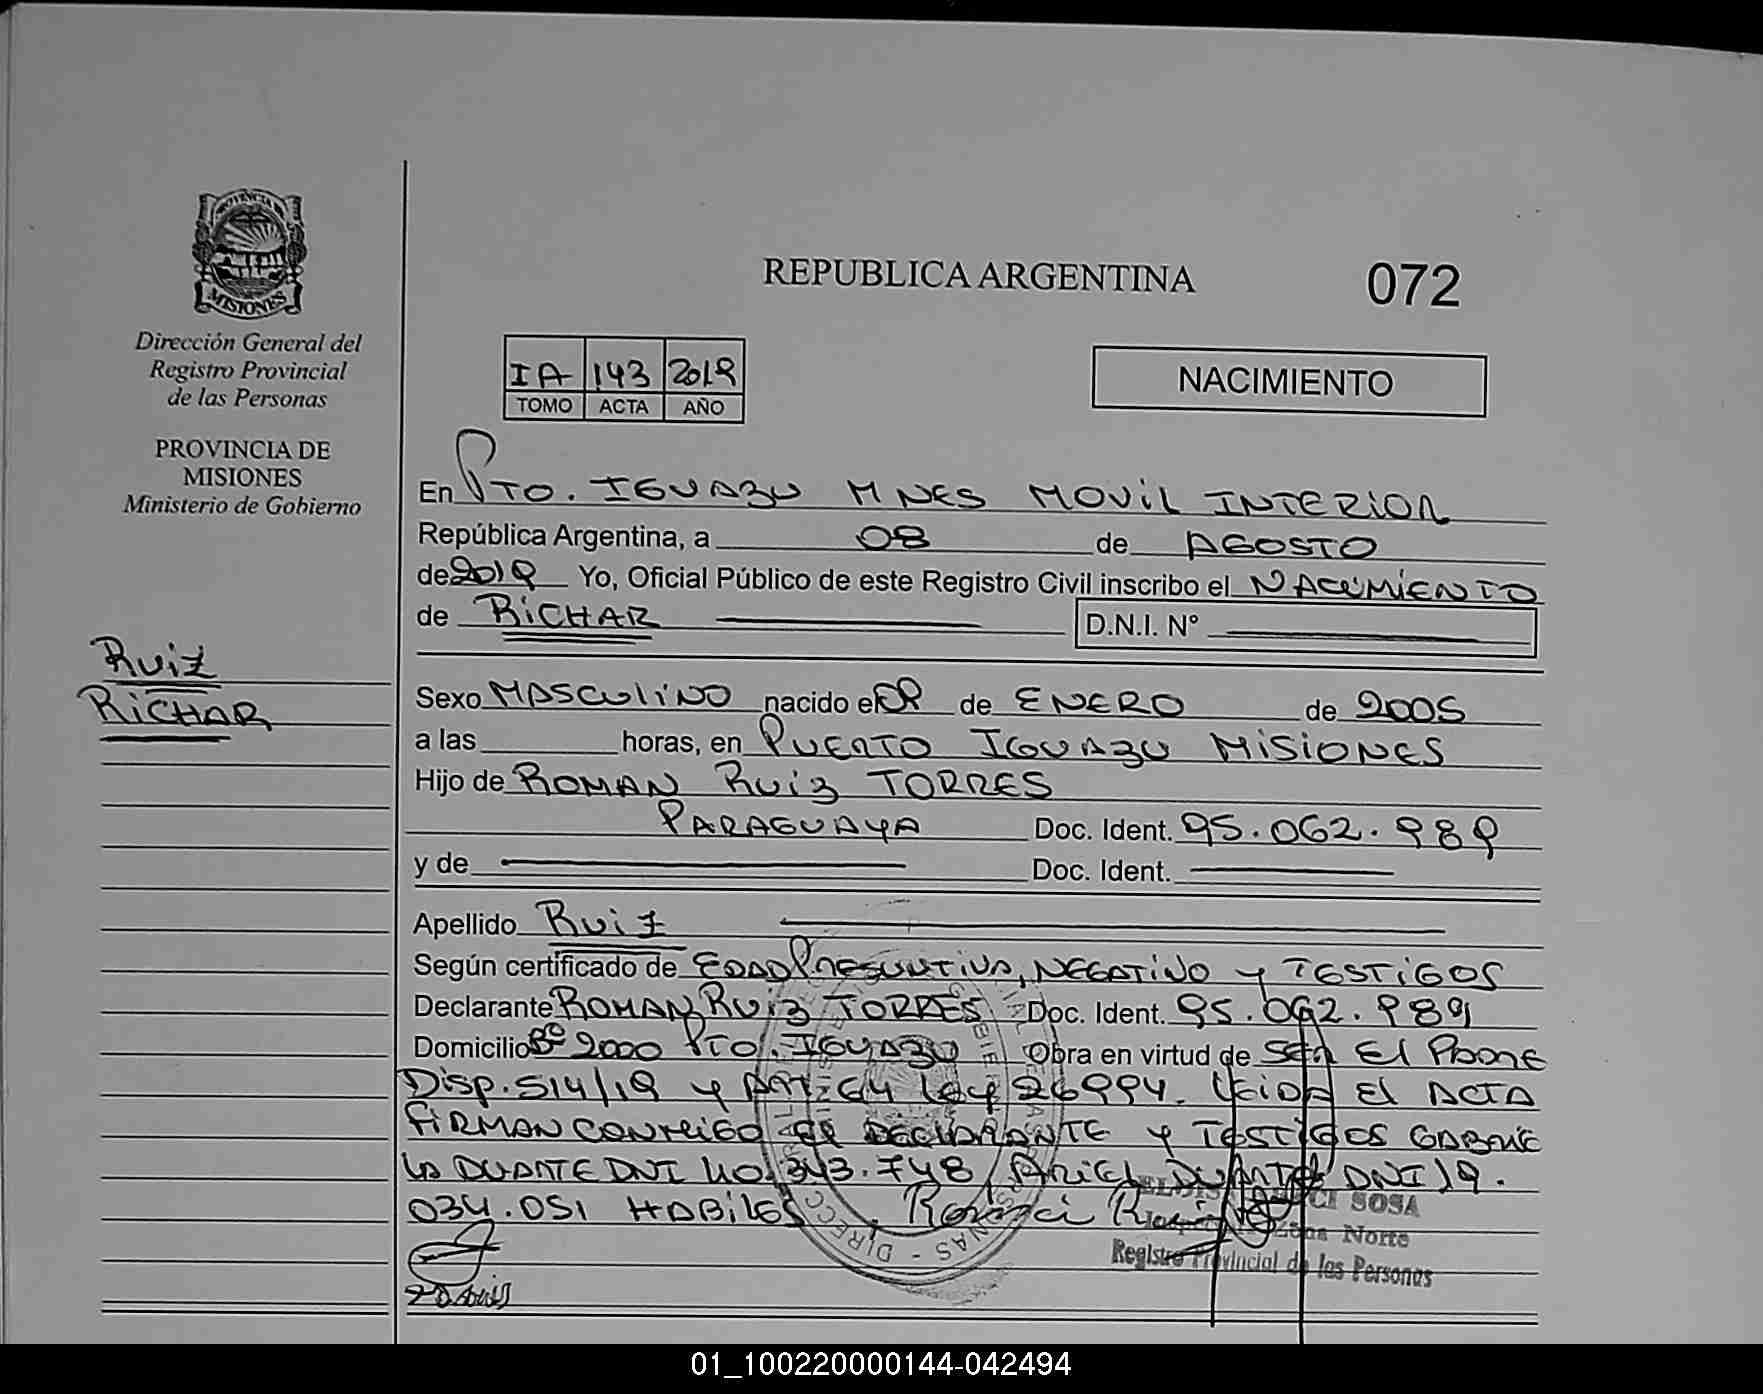 REPUBLICA ARGENTINA
072
MISIONES
Dirección General del
Registro Provincial
de las Personas
PROVINCIA DE
MISIONES
Ministerio de Gobierno
Ruiz
RICHAR
IA 143 2019
TOMO ACTA AÑO
NACIMIENTO
En PTO. IGUAZU MNES MOVIL INTERIOR
República Argentina, a 08 de AGOSTO
de 2019 Yo, Oficial Público de este Registro Civil inscribo el NACIMIENTO
de RICHAR D.N.I. N°
Sexo MASCULINO nacido el 09 de ENERO de 2005
a las horas, en PUERTO IGUAZU MISIONES
Hijo de ROMAN RUIZ TORRES
PARAGUAYA Doc. Ident. 95.062.989
y de Doc. Ident.
Apellido Ruiz
Según certificado de EDAD PRESUNTIVA, NEGATIVO y TESTIGOS
Declarante ROMAN RUIZ TORRES Doc. Ident. 95.062.989
Domicilio Bº 2000 PTO. IGUAZU Obra en virtud de SER El PADRE
Disp. 514/19 y ART. 64 Ley 26994. Leida El ACTA
FIRMAN CONMIGO El DECLARANTE y TESTIGOS GABRIE
LA DUARTE DNI 40.343.748, ARIEL DUARTE DNI 19.
034.051 HABILES.
SOSA
Zona Norte
Registro Provincial de las Personas
01_100220000144-042494